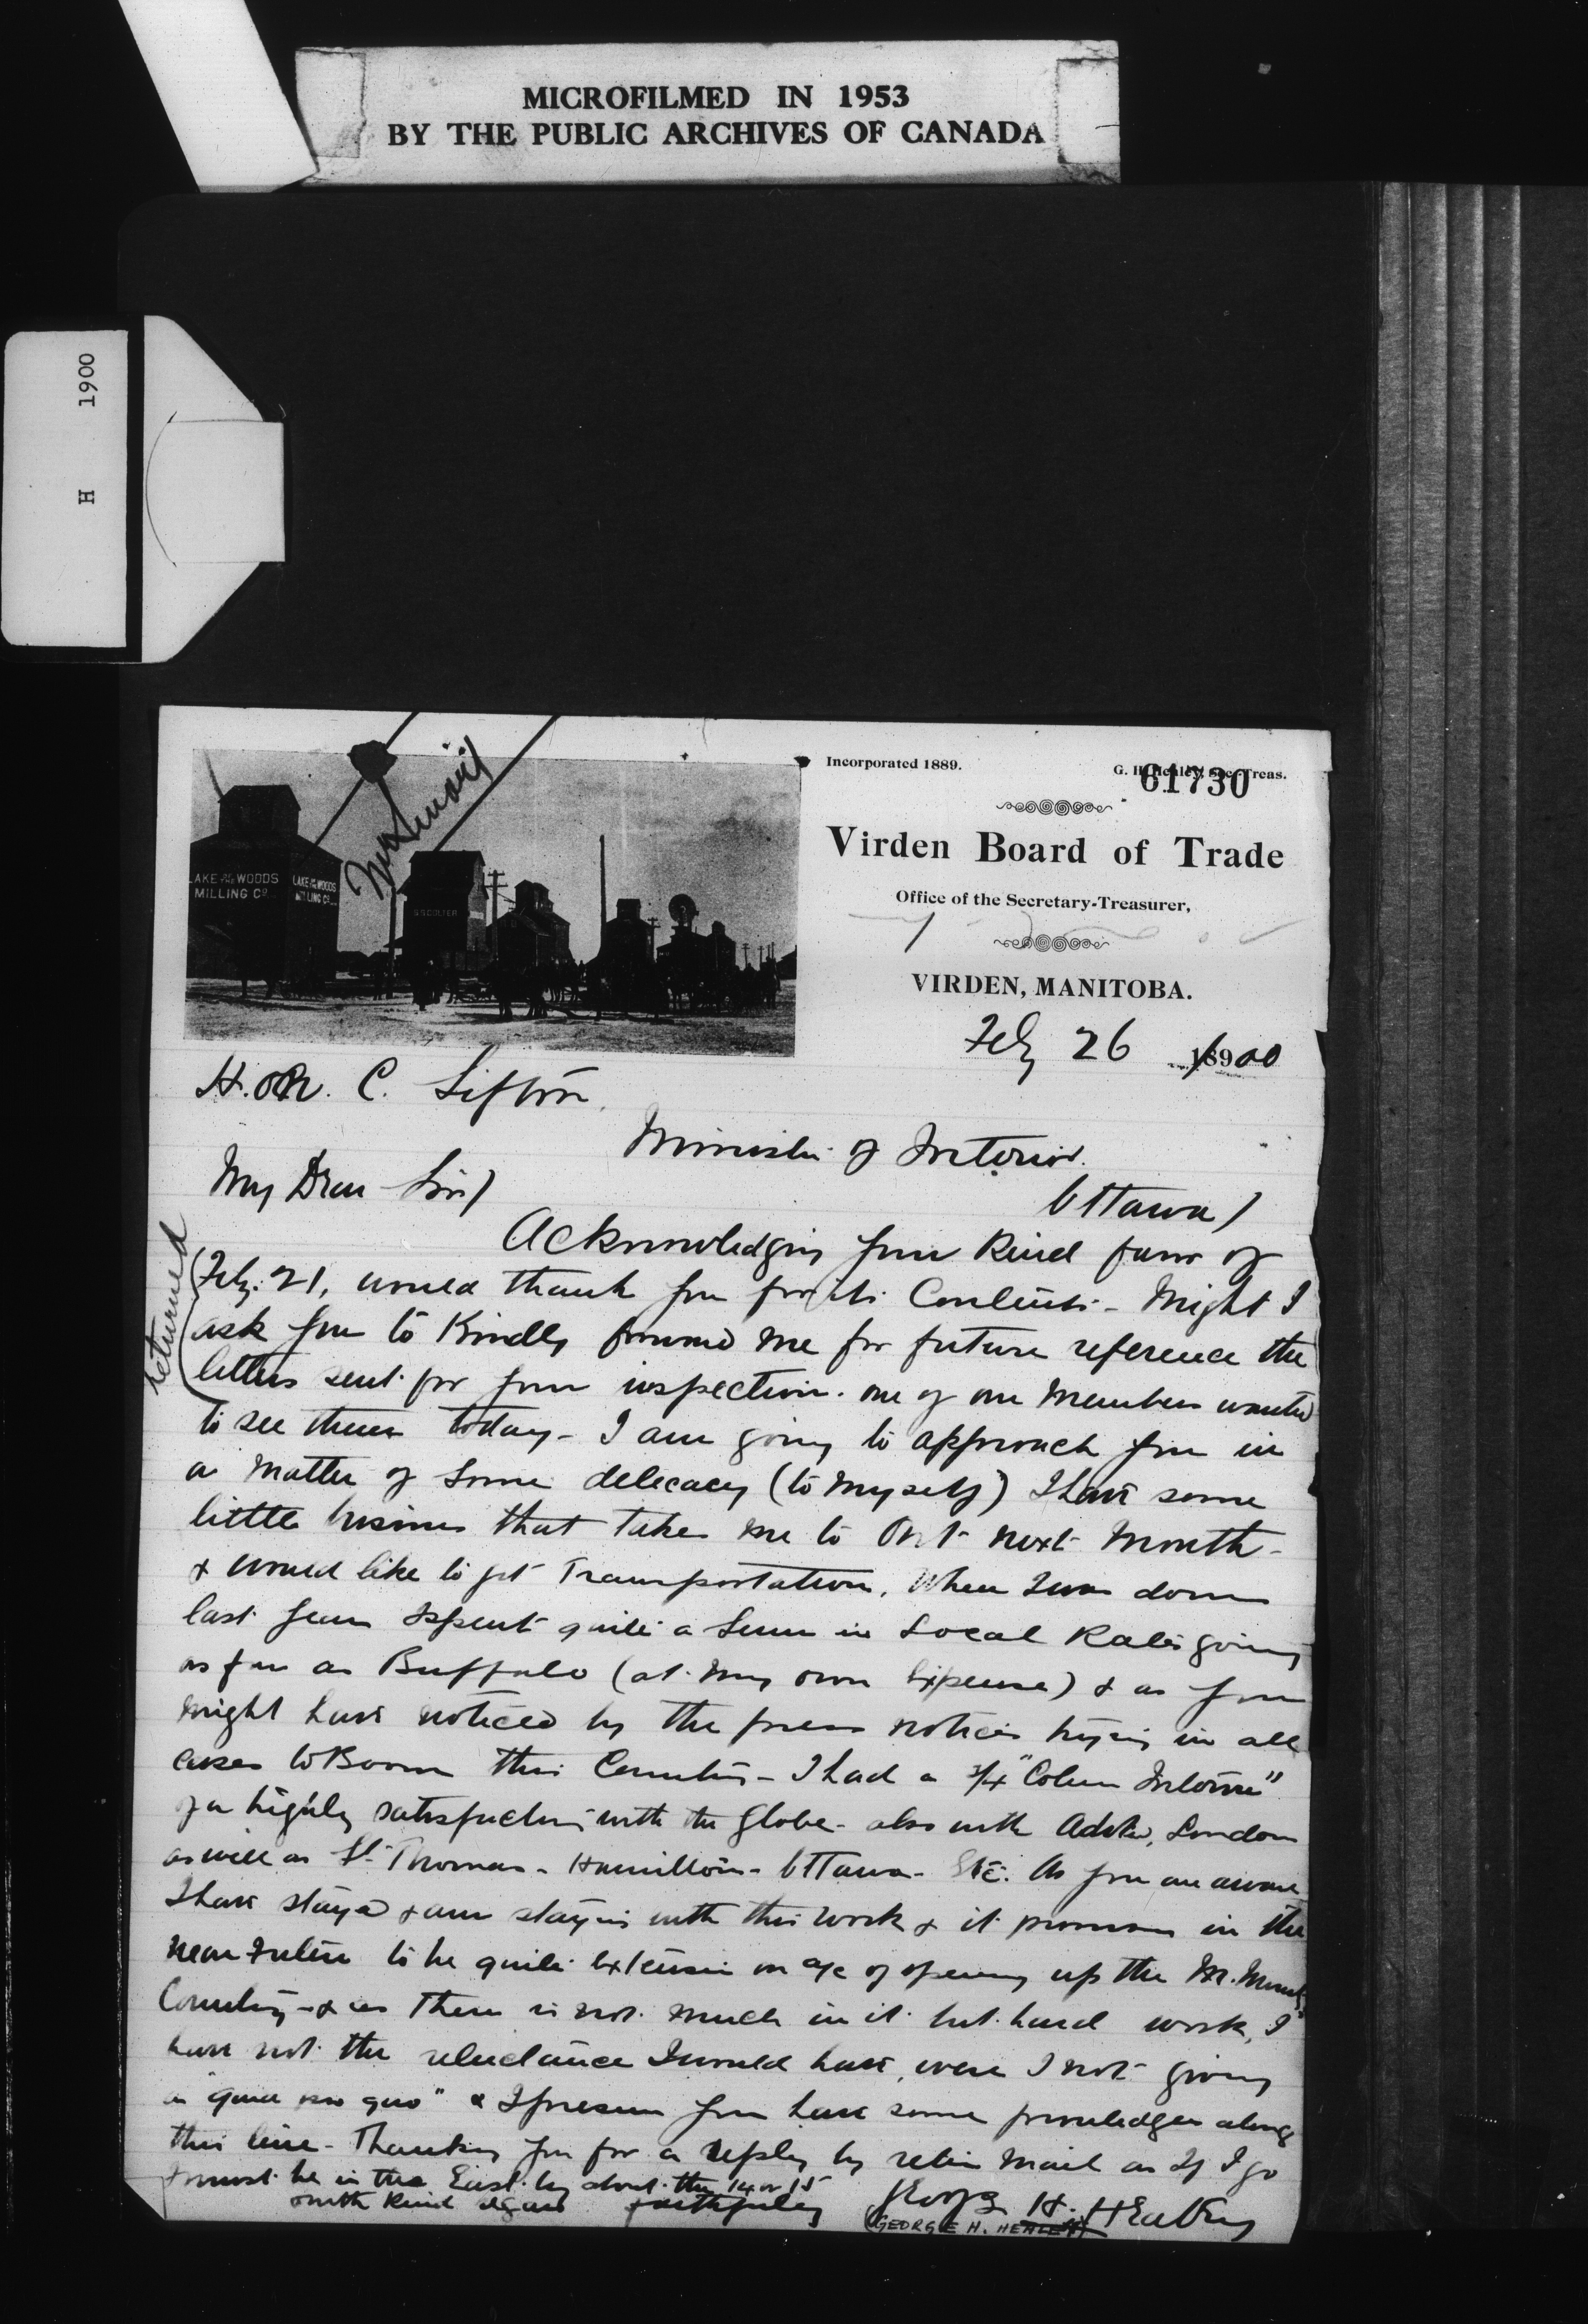 MICROFILMED IN 1953
BY THE PUBLIC ARCHIVES OF CANADA
H 1900
Incorporated 1889.
G. H. Healey, Sec-Treas.
61730
Virden Board of Trade
Office of the Secretary-Treasurer,
VIRDEN, MANITOBA.
LAKE OF THE WOODS
MILLING CO
LAKE OF THE WOODS
MILLING CO
Feby 26 1900
Hon. C. Sifton
Minister of Interior.
Ottawa)
My Dear Sir)
returned
Acknowledging your kind favor of
Feby. 21, would thank you for its Contents - Might I
ask you to Kindly forward me for future reference the
letters sent for your inspection. one of our Members wanted
to see them today - I am going to approach you in
a matter of some delecacy (to myself) I have some
little business that takes me to Ont next Month -
& would like to get Transportation. When I was down
last year I spent quite a sum in Local Rates going
as far as Buffalo (at my own Expense) & as you
might have noticed by the press notices trying in all
cases to Boom this Country - I had a 3/4 "Colum Interview"
of a highly satisfactory with the Globe - also with Advtr, London
as well as St. Thomas - Hamilton - Ottawa - Etc. As you are aware
I have stayed & am staying with this work & it promises in the
near future to be quite extensive on a/c of opening up the M. Mount
Country - & as there is not much in it but hard work, I
have not the reluctance I would have, were I not giving
a "quid pro quo" & I presume you have some priviledges along
this line - Thanking you for a reply by return mail as If I go
I must be in the East by about the 14 or 15
with kind regards faithfully
George H. Healey
(GEORGE H. HEALEY)